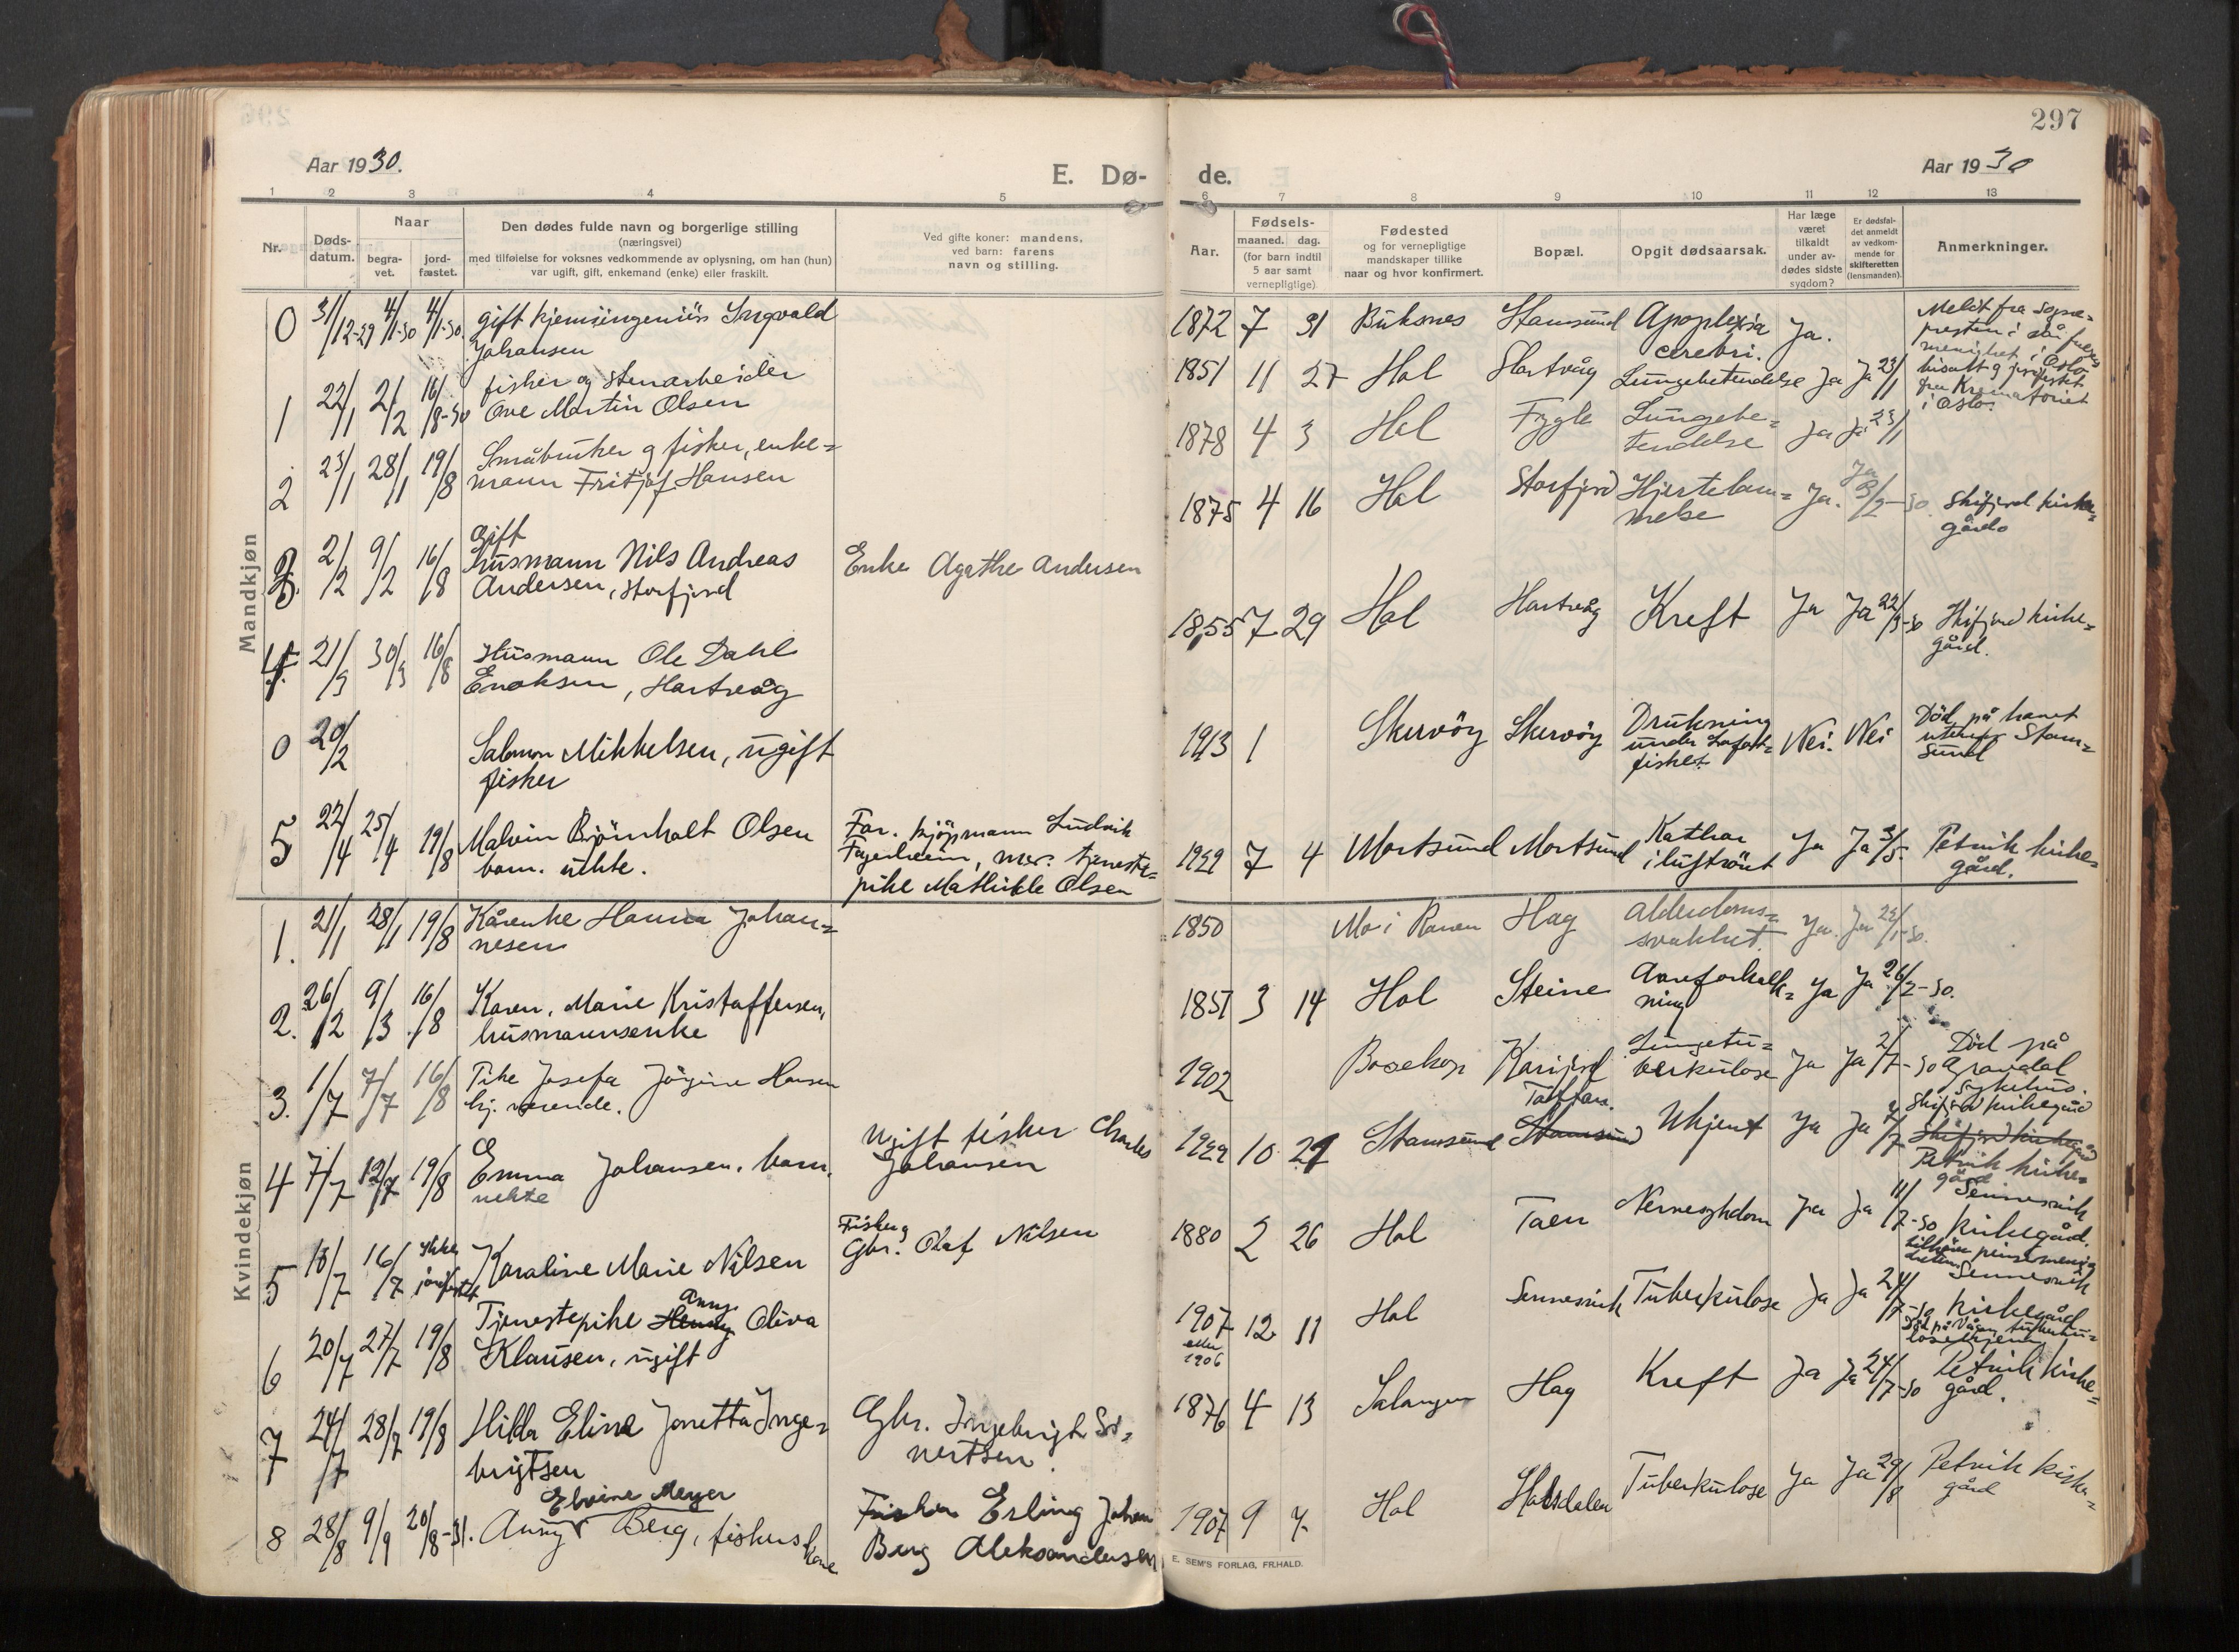 297
Aar 1930.
E. Dø-
de.
Aar 1930
1 2 3 4 5 6 7 8 9 10 11 12 13
Nr.
Døds-
datum.
Naar
begra-
vet.
jord-
fæstet.
Den dødes fulde navn og borgerlige stilling
(næringsvei)
med tilføielse for voksnes vedkommende av oplysning, om han (hun)
var ugift, gift, enkemand (enke) eller fraskilt.
Ved gifte koner: mandens,
ved barn: farens
navn og stilling.
Aar.
Fødsels-
maaned. dag.
(for barn indtil
5 aar samt
vernepligtige)
Fødested
og for vernepligtige
mandskaper tillike
naar og hvor konfirmert.
Bopæl.
Opgit dødsaarsak.
Har læge
været
tilkaldt
under av-
dødes sidste
sygdom?
Er dødsfal-
det anmeldt
av vedkom-
mende for
skifteretten
(lensmanden).
Anmerkninger.
Mandkjøn
0 31/12-29 4/1-30 4/1-30. gift kjemiingeniör Ingvald
Johansen
1872 7 31 Buksnes Stamsund Apoplexia
cerebri. Ja.
Meldt fra sogne-
presten i
menighet i Oslo
bisatt og jordfestet
fra Krematoriet
i Oslo.
1 22/1 2/2 16/8-30 fisker og stenarbeider
Ove Martin Olsen
1851 11 27 Hol Hartvåg Lungebetendelse Ja Ja 23/1
2 23/1 28/1 19/8 Småbruker og fisker, enke-
mann Fritjof Hansen
1878 4 3 Hol Fygle Lungebe-
tendelse Ja Ja 23/1
3. 2/2 9/2 16/8 Gift
husmann Nils Andreas
Andersen, Storfjord
Enke Agathe Andersen
1875 4 16 Hol Storfjord Hjertelam-
melse Ja. Ja 3/2-30. Skifjord kirke-
gård
4. 21/3 30/3 16/8 Husmann Ole Dahl
Enoksen, Hartvåg
1855 7 29 Hol Hartvåg Kreft Ja Ja 22/3-30 Skifjord kirke-
gård.
0 20/2 Salomon Mikkelsen, ugift
fisker
1913 1 Skervöy Skervöy Drukning
under Lofot-
fisket. Nei. Nei Död på havet
utenfor Stam-
sund
5 22/4 25/4 19/8 Malvin Björnholt Olsen
barn. uekte.
Far. kjöpmann Ludvik
Fagerheim, mor. tjeneste-
pike Mathilde Olsen
1929 7 4 Mortsund Mortsund Kathar
i luftrört Ja Ja 3/5. Petvik kirke-
gård.
Kvindekjøn
1. 21/1 28/1 19/8 Kårenke Hanna Johan-
nesen
1850 Mo i Ranen Hag Alderdoms-
svakhet. Ja. Ja 23/1-30.
2. 26/2 9/3 16/8 Karen Marie Kristoffersen,
husmannsenke
1851 3 14 Hol Steine Aareforkalk-
ning Ja Ja 26/2-30.
3. 1/7 7/7 16/8 Pike Josefa Jörgine Hansen
hj. værende.
1902 Bosekop Lungetu-
berkulose Ja Ja 2/7-30 Död på
Gravdal
sykehus.
Skifjord kirkegård
4 7/7 12/7 19/8 Emma Johansen. barn.
uekte
Ugift fisker Charles
Johansen
1929 10 21 Stamsund Stamsund Ukjent Ja Ja 9/7 Skifjord kirkegård
Petvik kirke-
gård
5 13/7 16/7 Ikke
jordfestet Karaline Marie Nilsen
Fisker og
Gbr. Olaf Nilsen
1880 2 26 Hol Taen Nervesykdom Ja Ja 11/7-30 Sennesvik
kirkegård.
tilhörer pinsemenig-
heten.
6 20/7 27/7 19/8 Tjenestepike Henny Anny Oliva
Klausen, ugift
1907
eller
1906 12 11 Hol Sennesvik Tuberkulose Ja Ja 24/7-30 Sennesvik
kirkegård
Död på Vågan tuberku-
losehjem
7 24/7 28/7 19/8 Hilda Eline Jonetta Inge-
brigtsen
Gbr. Ingebrigt Si-
vertsen.
1876 4 13 Salangen Hag Kreft Ja Ja 24/7-30 Petvik kirke-
gård.
8 28/8 9/9 20/8-31. Anny Elvine Meyer Berg, fiskers kone
Fisker Erling Johan
Berg Aleksandersen
1907 9 7 Hol Holsdalen Tuberkulose Ja Ja 29/8 Petvik kirke-
gård
E. SEM'S FORLAG, FR.HALD.